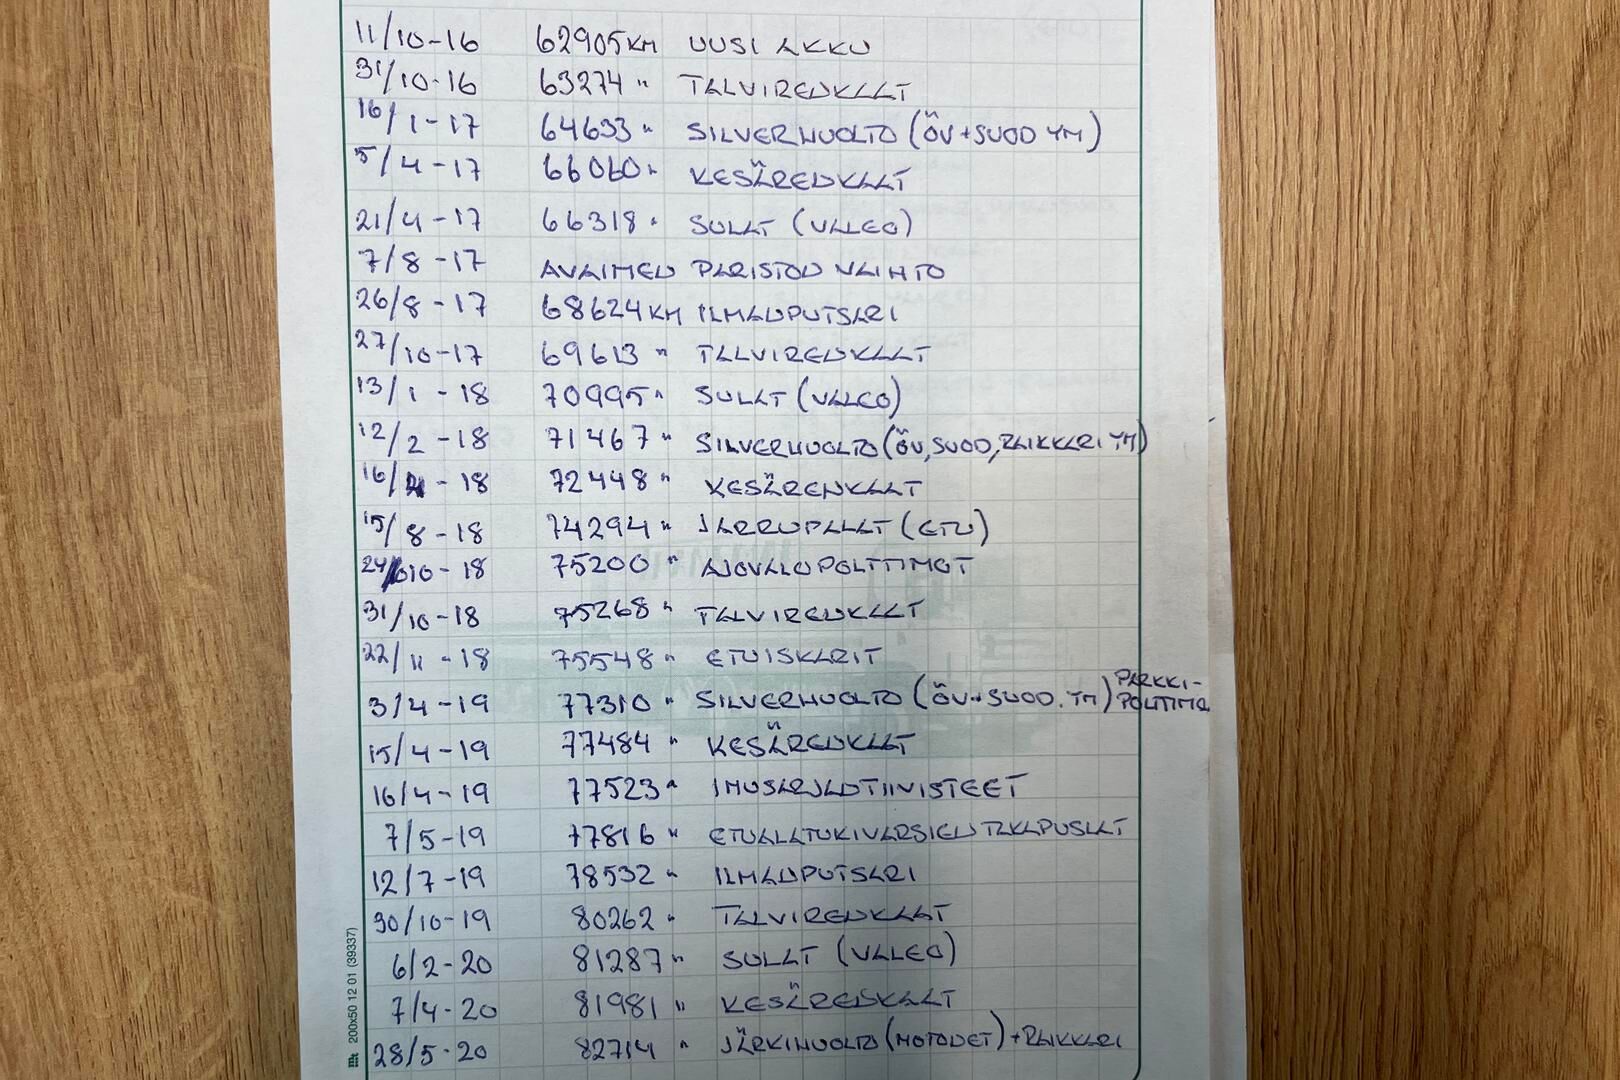 11/10-16 62905KM UUSI AKKU
31/10-16 63274 " TALVIRENKAAT
16/1-17 64633 " SILVERHUOLTO (ÖV+SUOD YM)
5/4-17 66060 " KESÄRENKAAT
21/4-17 66318 " SULAT (VALEO)
7/8-17 AVAIMEN PARISTON VAIHTO
26/8-17 68624KM ILMANPUTSARI
27/10-17 69613 " TALVIRENKAAT
13/1-18 70995 " SULAT (VALEO)
12/2-18 71467 " SILVERHUOLTO (ÖV,SUOD,RAIKKARI YM)
16/4-18 72448 " KESÄRENKAAT
15/8-18 74294 " JARRUPALAT (ETU)
24/10-18 75200 " AJOVALOPOLTTIMOT
31/10-18 75268 " TALVIRENKAAT
22/11-18 75548 " ETUISKARIT
3/4-19 77310 " SILVERHUOLTO (ÖV+SUOD. YM) PARKKI-
POLTTIMO
15/4-19 77484 " KESÄRENKAAT
16/4-19 77523 " IMUSARJANTIIVISTEET
7/5-19 77816 " ETUALATUKIVARSIEN TAKAPUSLAT
12/7-19 78532 " ILMANPUTSARI
30/10-19 80262 " TALVIRENKAAT
6/2-20 81287 " SULAT (VALEO)
7/4-20 81981 " KESÄRENKAAT
28/5-20 82714 " JÄRKIHUOLTO (MOTONET) + RAIKKARI
mt 200x50 12 01 (39337)